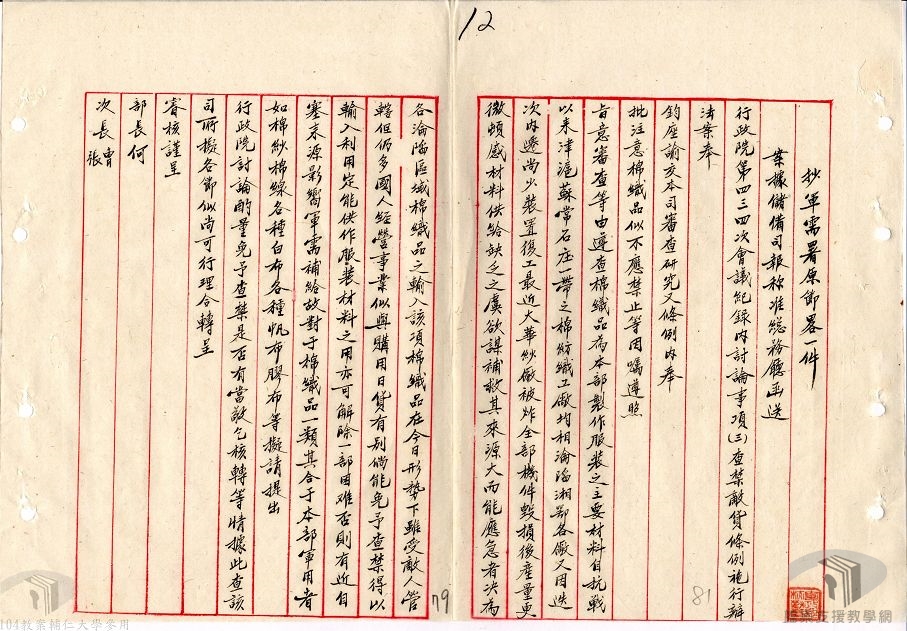 12
抄軍需署原節畧一件
案據儲備司報称准總務廳函送
行政院第四三四次會議紀録内討論事項(三)查禁敵貨條例施行辦
法案奉
鈞座諭交本司審查研究又條例内奉
批注意棉織品似不應禁止等因囑遵照
旨意審查等由遵查棉織品為本部製作服裝之主要材料自抗戰
以來津滬蘇常石庄一帶之棉紡織工廠均相淪陷湘鄂各廠又因迭
次内遷尚少裝置復工最近大華紗廠被炸全部機件毀損後產量更
微頓感材料供給缺乏之虞欲謀補救其來源大而能應急者决為
81
各淪陷區域棉織品之輸入該項棉織品在今日形勢下雖受敵人管
轄但仍多國人經營事業似與購用日貨有别倘能免予查禁得以
輸入利用定能供作服裝材料之用亦可解除一部困难否則有近自
塞來源影響軍需補給故對于棉織品一類其合于本部軍用者
如棉紗棉線各種白布各種帆布膠布等擬請提出
行政院討論酌量免予查禁是否有當敬乞核轉等情據此查該
司所擬各節似尚可行理合轉呈
審核謹呈
部長何
次長曹
張
79
104教案輔仁大學參用
檔案支援教學網